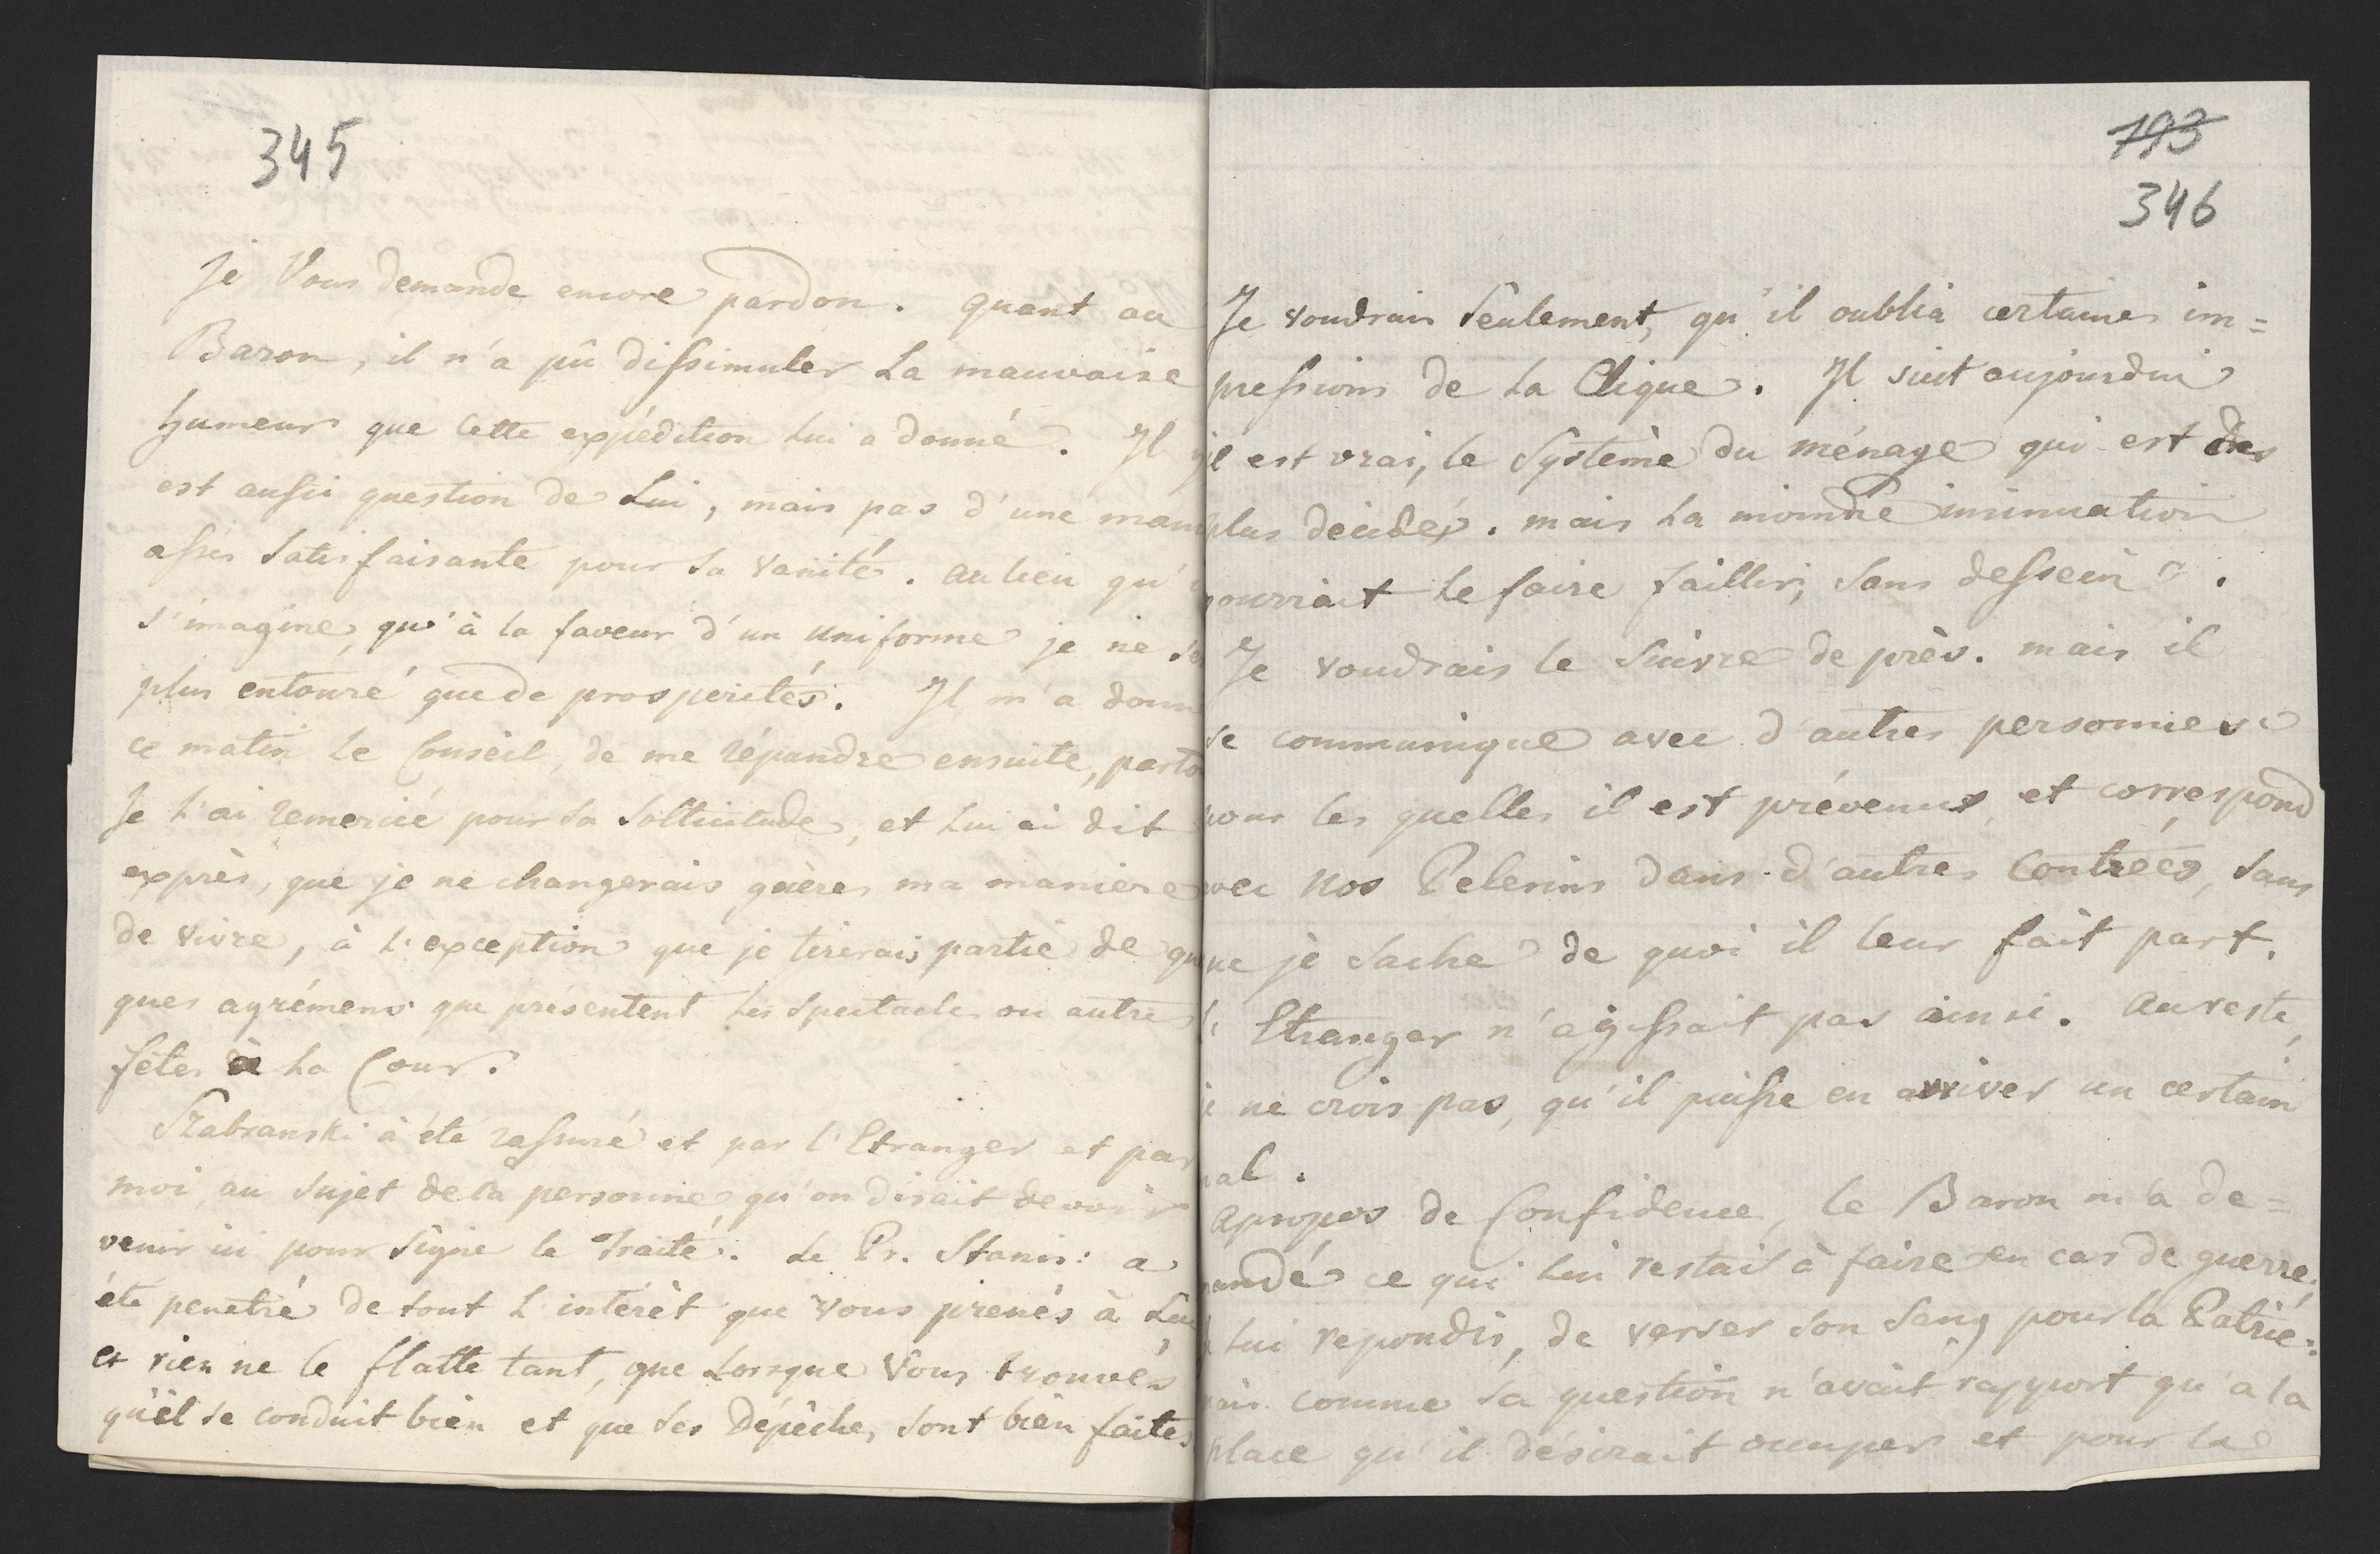 345
Je Vous demande encore pardon. quant au
Baron, il n'a pû dissimuler la mauvaise
humeur que cette expédition lui a donné. Il
est aussi question de Lui, mais pas d'une man
assés satisfaisante pour sa vanité. au lieu qu'
s'imagine, qu'à la faveur d'un uniforme je ne se
plus entouré que de prosperités. Il m'a donn
ce matin le Conseil, de me répandre ensuite, parto
Je l'ai remercié pour sa sollicitude, et lui ai dit
exprès, que je ne changerais guères ma maniere
de vivre, à l'exception que je tirerais partie de qu
ques agrémens que présentent les spectacles ou autres
fêtes à la Cour.
Szabranski à été rassuré et par l'Etranger et par
moi, au sujet de la personne, qu'on disait devoir
venir ici pour signe le Traité. Le Pr. Stanis: a
été penetré de tout l'intérêt que Vous prenés à Lui
et rien ne le flatte tant, que lorsque Vous trouvés
qu'il se conduit bien et que ses Dépêches sont bien faites
793
346
Je voudrais seulement, qu'il oublia certaines im=
pressions de la Clique. Il suit aujourdui
il est vrai, le système du ménage qui est des
plus décidés. mais la moindre insinuation
pourrait le faire faillir, sans dessein.
Je voudrais le suivre de près. mais il
se communique avec d'autres personnes
pour les quelles il est prévenus, et correspond
avec nos Pelerins dans d'autres Contrées, sans
que je sache de quoi il leur fait part.
l'Etranger n'agissait pas ainsi. Au reste,
je ne crois pas, qu'il puisse en arriver un certain
mal.
Apropos de Confidence, le Baron m'a de=
mandé ce qui lui restait à faire en cas de guerre,
lui repondis, de verser son sang pour la Patrie:
mais comme sa question n'avait rapport qu'a la
place qu'il désirait occuper et pour la